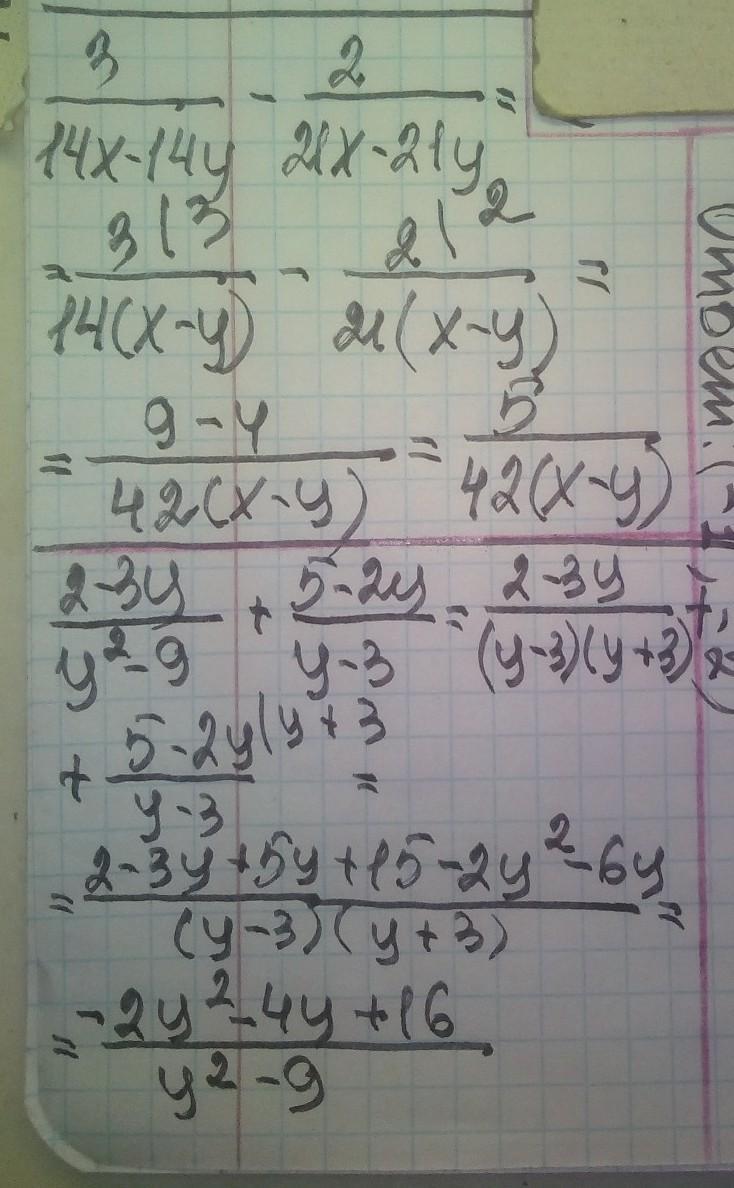 3/(14x-14y) - 2/(21x-21y) =
= 3\3/(14(x-y)) - 2\2/(21(x-y)) =
= (9-4)/(42(x-y)) = 5/(42(x-y))
(2-3y)/(y²-9) + (5-2y)/(y-3) = (2-3y)/((y-3)(y+3)) +
+ (5-2y\y+3)/(y-3) =
= (2-3y+5y+15-2y²-6y)/((y-3)(y+3)) =
= (-2y²-4y+16)/(y²-9)
Ответ: (-1; -2)